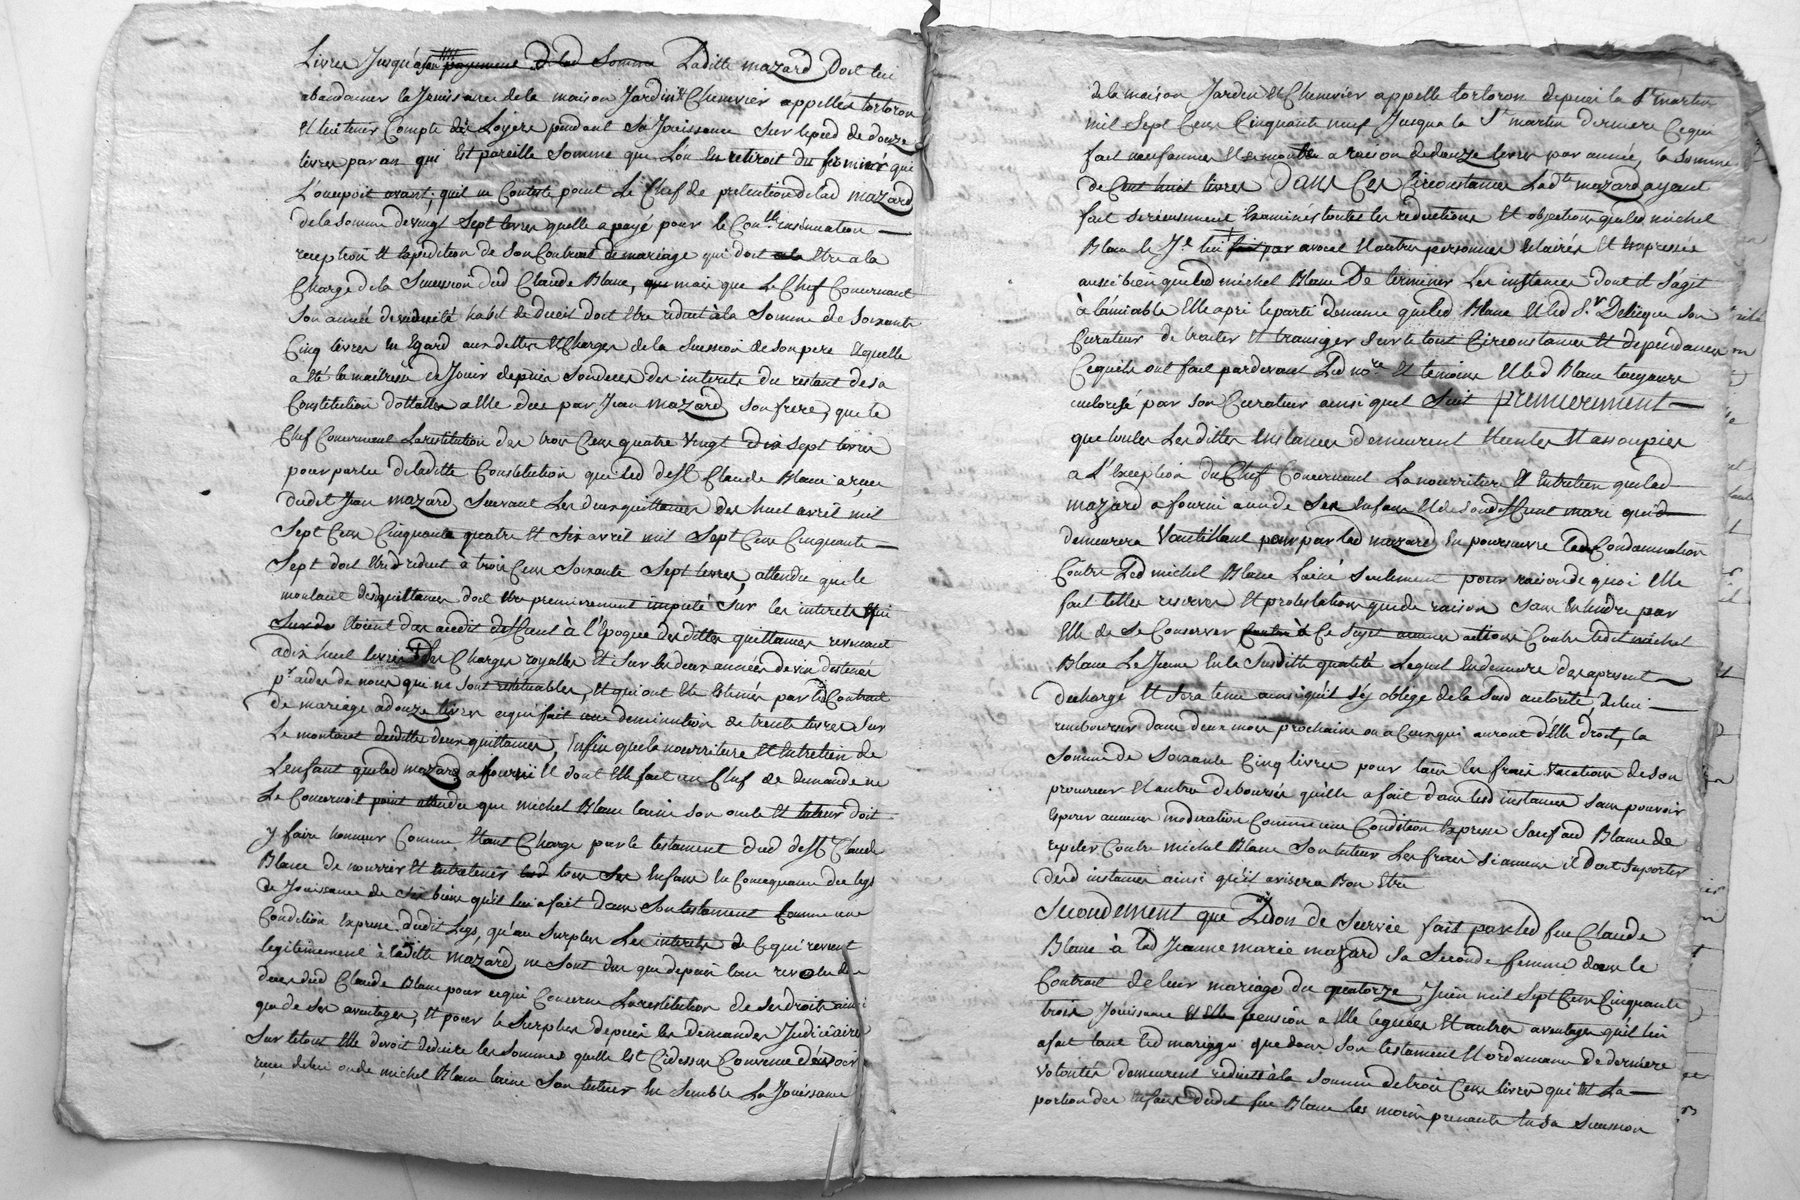 Livres Jusqu'a son payement de lad somme Laditte mazard doit lui
abandonner la Jouissance de la maison Jardin & Chenevier appellés tortoron
Et lui tenir Compte des Loyers pendant sa Jouissance sur le pied de douze
livres par an qui Est pareille somme que l'on En retiroit du fermier qui
L'occupoit avant; qu'il ne Conteste point Le Chef de pretention de lad mazard
de la somme de vingt sept livres quelle a payé pour le Conlle insinuation
reception Et Expedition de son Contrat de mariage qui doit Etre a la
Charge de la Succession dud Claude Blanc, mais que Le Chef Concernant
son année de viduité habit de dueil doit Etre reduit à la somme de soixante
Cinq livres En Egard aux dettes & Charges de la succession de son pere Laquelle
a Eté la maitresse de Jouir depuis son deces des interets du restant de sa
Constitution dottalle a Elle due par Jean mazard son frere, que le
Chef Concernant La restitution des trois Cens quatre vingt dix sept livres
pour partie de laditte Constitution que led deff Claude Blanc a reçu
dudit Jean mazard suivant Les deux quittances des huit avril mil
sept Cens Cinquante quatre Et six avril mil sept Cens Cinquante
sept doit Etre reduit à trois Cens soixante sept livres, attendu que le
montant des quittances doit Etre premierement imputé sur les interets qui
Etoient dus audit deffunt à l'Epoque des dittes quittances revenant
a dix huit livres Les Charges royalles Et sur les deux années de vin destinés
pr aides de nous qui ne sont restituables, Et qui ont Eté Estimés par led Contrat
de mariage a douze livres ce qui fait une deminution de trente livres sur
Le montant desdittes deux quittances, Enfin que la nourriture Et Entretien de
L'enfant que lad mazard a fourni Et dont Elle fait un Chef de demande ne
Le Concernoit point attendu que michel Blanc lainé son oncle Et tuteur doit
y faire honneur Comme Etant Chargé par le testament dud deff Claude
Blanc de nourrir Et Entretenir tous ses Enfans En Consequence du legs
de Jouissance de ses biens qu'il lui a fait dans son testament Comme une
Condition Expresse dudit Legs, qu'au surplus Les interets de ce qui revient
legitimement à laditte mazard ne sont dus que depuis l'an revolu du
deces dud Claude Blanc pour ce qui Concerne La restitution de ses droits ainsi
que de ses avantages, Et pour le surplus depuis les demandes Judiciaires
sur le tout Elle devoit deduire les sommes quelle Est Cidessus Convenue d'avoir
reçue de lui ou de michel Blanc lainé son tuteur En semble La Jouissance
de la maison Jardin Et Chenevier appellé tortoron depuis la St martin
mil sept Cens Cinquante neuf Jusqu'a la St martin derniere Ce qui
fait neuf années Et se monte a raison de douze livres par année, la somme
de Cent huit livres Dans Ces Circonstances Ladte mazard ayant
fait serieusement Examiner toutes les reductions Et objections que led michel
Blanc le Je. lui fait par avocat Et autres personnes Eclairés Et Empressée
aussi bien que led michel Blanc De terminer Les instances dont il s'agit
à l'amiable Elle a pri le parti de meme que led Blanc Et led Sr Delieque son
Curateur de traiter Et transiger sur le tout Circonstances Et dependances
Ce qu'ils ont fait pardevant Led nore Et temoins Et led Blanc toujours
autorisé par son Curateur ainsi quil suit Premierement
que toutes Les dittes Instances demeurent Eteintes Et assoupies
a l'Exception du Chef Concernant La nourriture Et Entretien que lad
mazard a fourni a un de ses Enfans Et de son deffunt mari qui
demeurera Vaccillant pour par lad mazard En poursuivre la Condamnation
Contre Led michel Blanc Lainé seulement pour raison de quoi Elle
fait telles reserves Et protestations que de raison sans Entendre par
Elle de se Conserver à Ce sujet aucunes actions Contre ledit michel
Blanc Le Jeune En la susditte qualité Lequel En demeure des apresent
dechargé Et sera tenu ainsi qu'il s'y oblige de la susd autorité, de lui
rembourser dans deux mois prochains ou a Ceux qui auront d'Elle droit, la
somme de soixante Cinq livres pour tous les frais Vacations de son
procureur Et autres deboursés quelle a fait dans lesd instances sans pouvoir
Esperer aucune moderation Comme une Condition Expresse sauf aud Blanc de
repeter Contre michel Blanc son tuteur Les frais si aucuns il doit suporter
desd instances ainsi qu'il avisera Bon Etre
Secondement que Le don de survie fait par led feu Claude
Blanc à lad Jeanne marie mazard sa seconde femme dans le
Contrat de leur mariage du quatorze Juin mil sept Cens Cinquante
trois Jouissance Et pension a Elle leguées Et autres avantages qu'il lui
a fait tant led mariage que dans son testament Et ordonnance de derniere
volontés demeurent reduits à la somme de trois Cens livres qui Est La
portion des Enfans dudit feu Blanc les moins prenants En sa succession